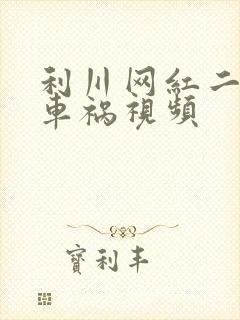 利川网紅二
車祸視頻
寶利丰